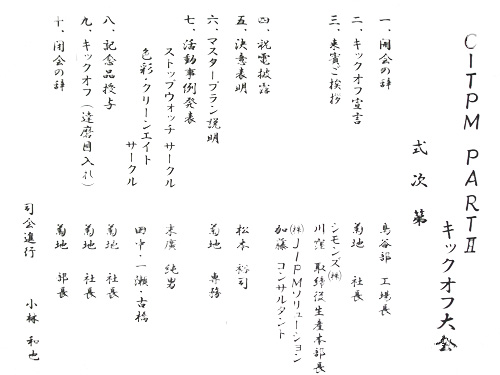 CITPM PART II
キックオフ大会
式次第
一、開会の辞 鳥谷部 工場長
二、キックオフ宣言 菊地 社長
三、来賓ご挨拶 シモンズ㈱
川窪 取締役生産本部長
㈱JIPMソリューション
加藤 コンサルタント
四、祝電披露
五、決意表明 松本 裕司
六、マスタープラン説明 菊地 専務
七、活動事例発表
ストップウォッチ サークル 末廣 純男
色彩・クリーンエイト
サークル 田中・一瀬・古橋
八、記念品授与 菊地 社長
九、キックオフ(達磨目入れ) 菊地 社長
十、閉会の辞 菊地 部長
司会進行 小林 和也